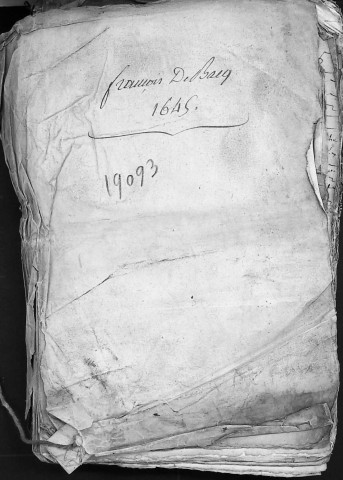 françois De Bacq
1645.
19093